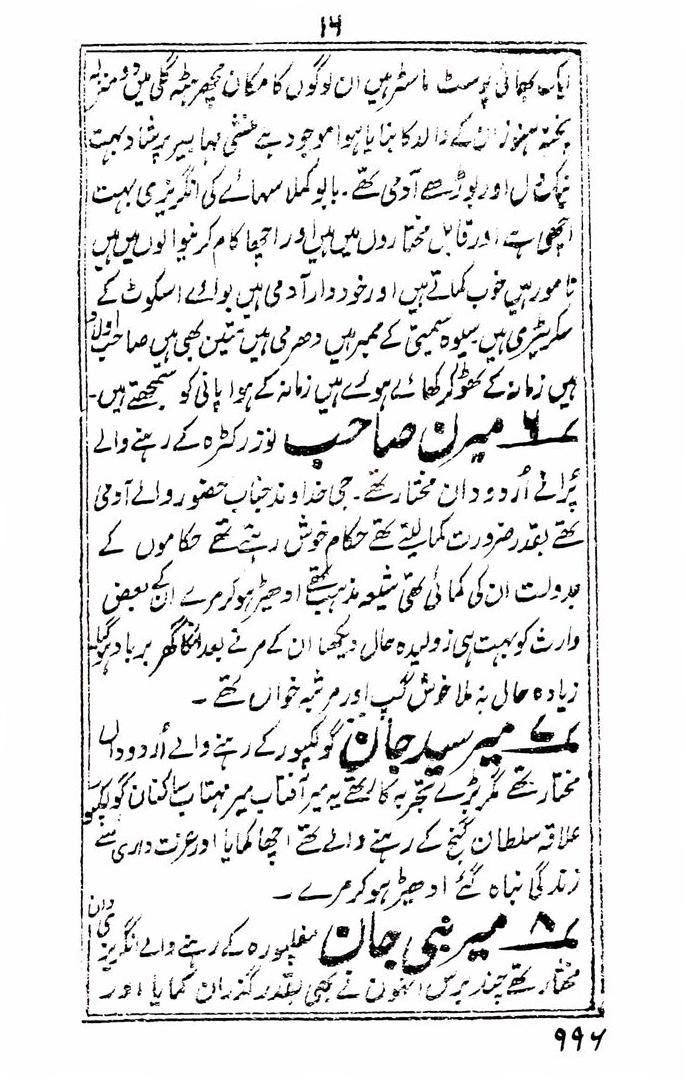 ۱۴
ایک بھائی پوسٹ ماسٹر ہیں ان لوگوں کا مکان مچھرہٹہ گلی میں دو منزلہ
پختہ ہنوز ان کے والد کا بنایا ہوا موجود ہے منشی مہابیر پرشاد بہت
نیک دل اور بوڑھے آدمی تھے۔ بابو کملا سہائے کی انگریزی بہت
اچھی ہے اور قابل مختاروں میں ہیں اور اچھا کام کرنیوالوں میں ہیں
نامور ہیں خوب کماتے ہیں اور خود دار آدمی ہیں بوائے اسکوٹ کے
سکریٹری ہیں سیوہ سمیتی کے ممبر ہیں دھرمی ہیں متین بھی ہیں صاحب اولاد
ہیں زمانہ کے ٹھوکر کھائے ہوئے ہیں زمانہ کے ہوا پانی کو سمجھتے ہیں۔
۶ میرن صاحب نوذرکٹرہ کے رہنے والے
پرانے اُردو دان مختار تھے۔ جی خداوند جناب حضور والے آدمی
تھے بقدر ضرورت کما لیتے تھے حکام خوش رہتے تھے حکاموں کے
بدولت ان کی کمائی تھی شیعہ مذہب تھے ادھیڑ ہو کر مرے ان کے بعض
وارث کو بہت ہی ژولیدہ حال دیکھا ان کے مرنے بعد انکا گھر برباد ہو گیا
زیادہ حال نہ ملا خوش گپ اور مرثیہ خواں تھے۔
۷ میر سید جان گولکپور کے رہنے والے اُردو داں
مختار تھے مگر بڑے تجربہ کار تھے یہ میر آفتاب میر مہتاب ساکنان گولکپور
علاقہ سلطان گنج کے رہنے والے تھے اچھا کمایا اور عزت داری سے
زندگی نباہ گئے ادھیڑ ہو کر مرے۔
۸ میر نبی جان مغلپورہ کے رہنے والے انگریزی دان
مختار تھے چند برس انہوں نے بھی بقدر گذران کمایا اور
۹۹۶